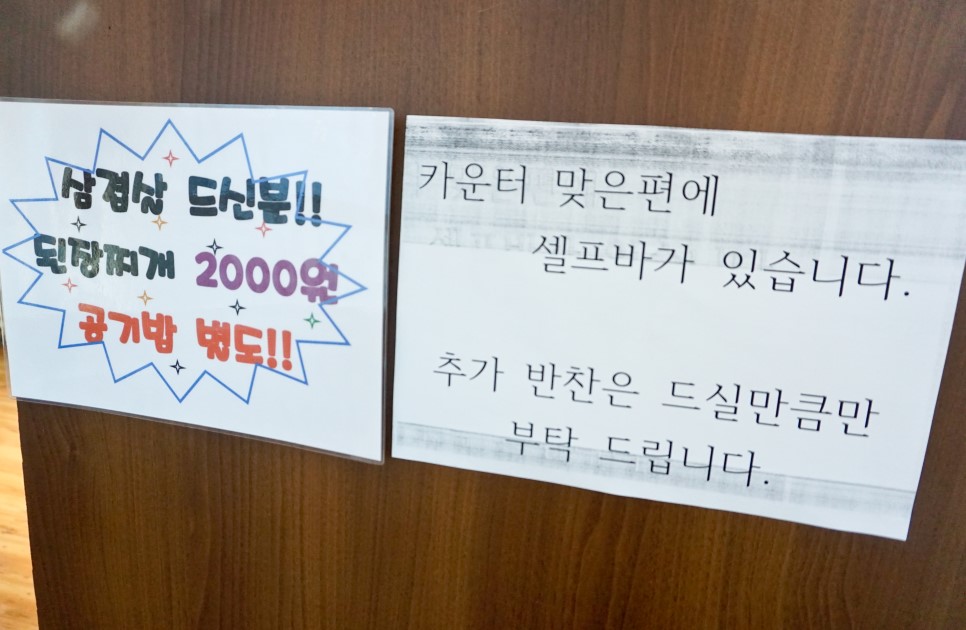 삼겹살 드신분!!
된장찌개 2000원
공기밥 별도!!
카운터 맞은편에
셀프바가 있습니다.
추가 반찬은 드실만큼만
부탁 드립니다.